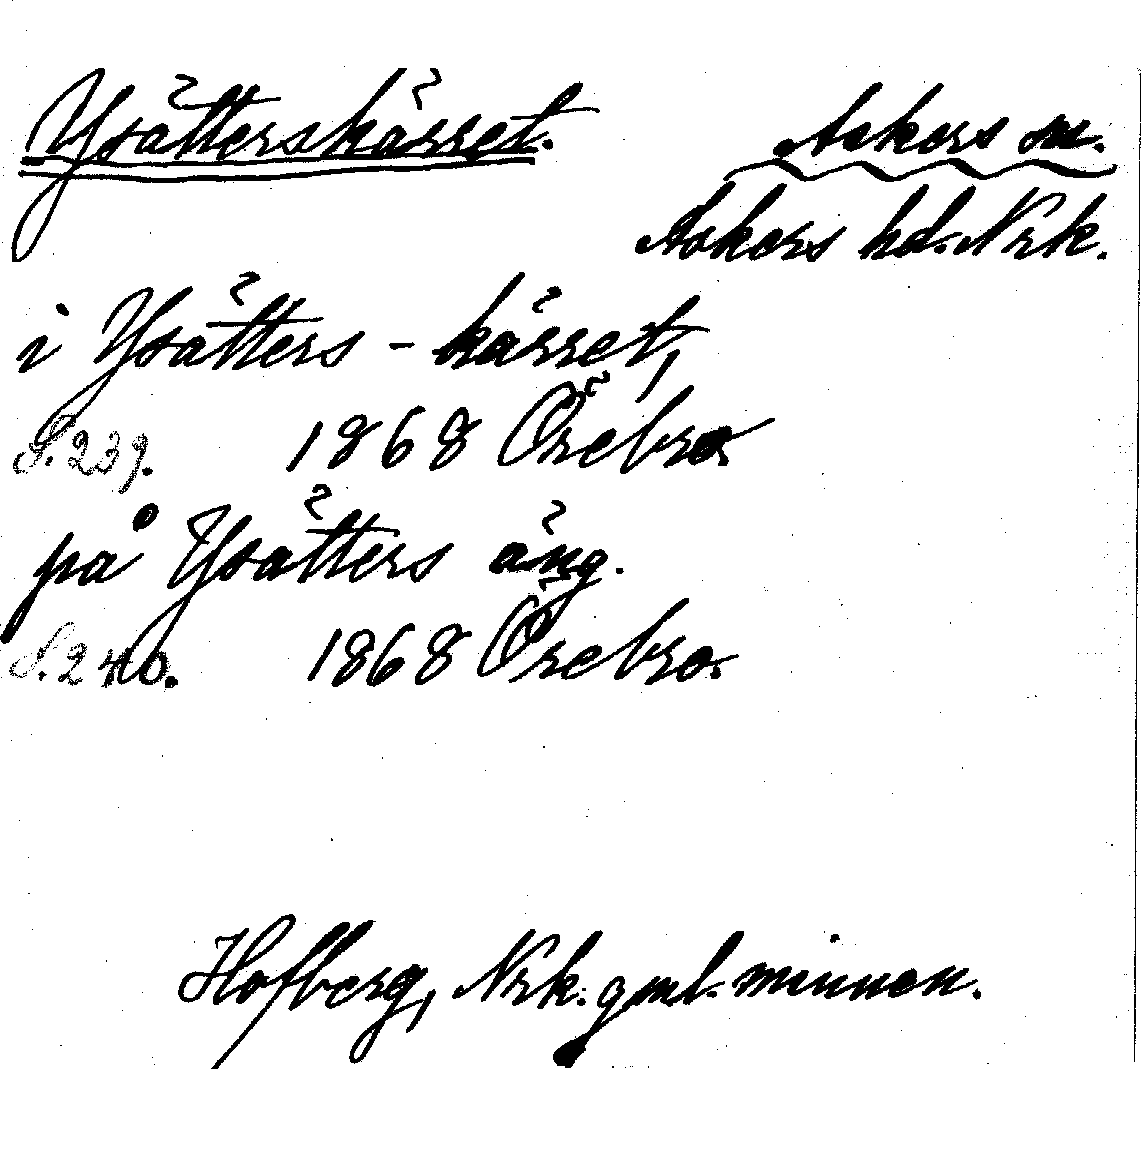 Ysätterskärret. Askers sn.
Askers hd. Nrk.
i Ysätters-kärret,
S. 239. 1868 Örebro.
på Ysätters äng.
S. 240. 1868 Örebro.
Hofberg, Nrk. gml. minnen.